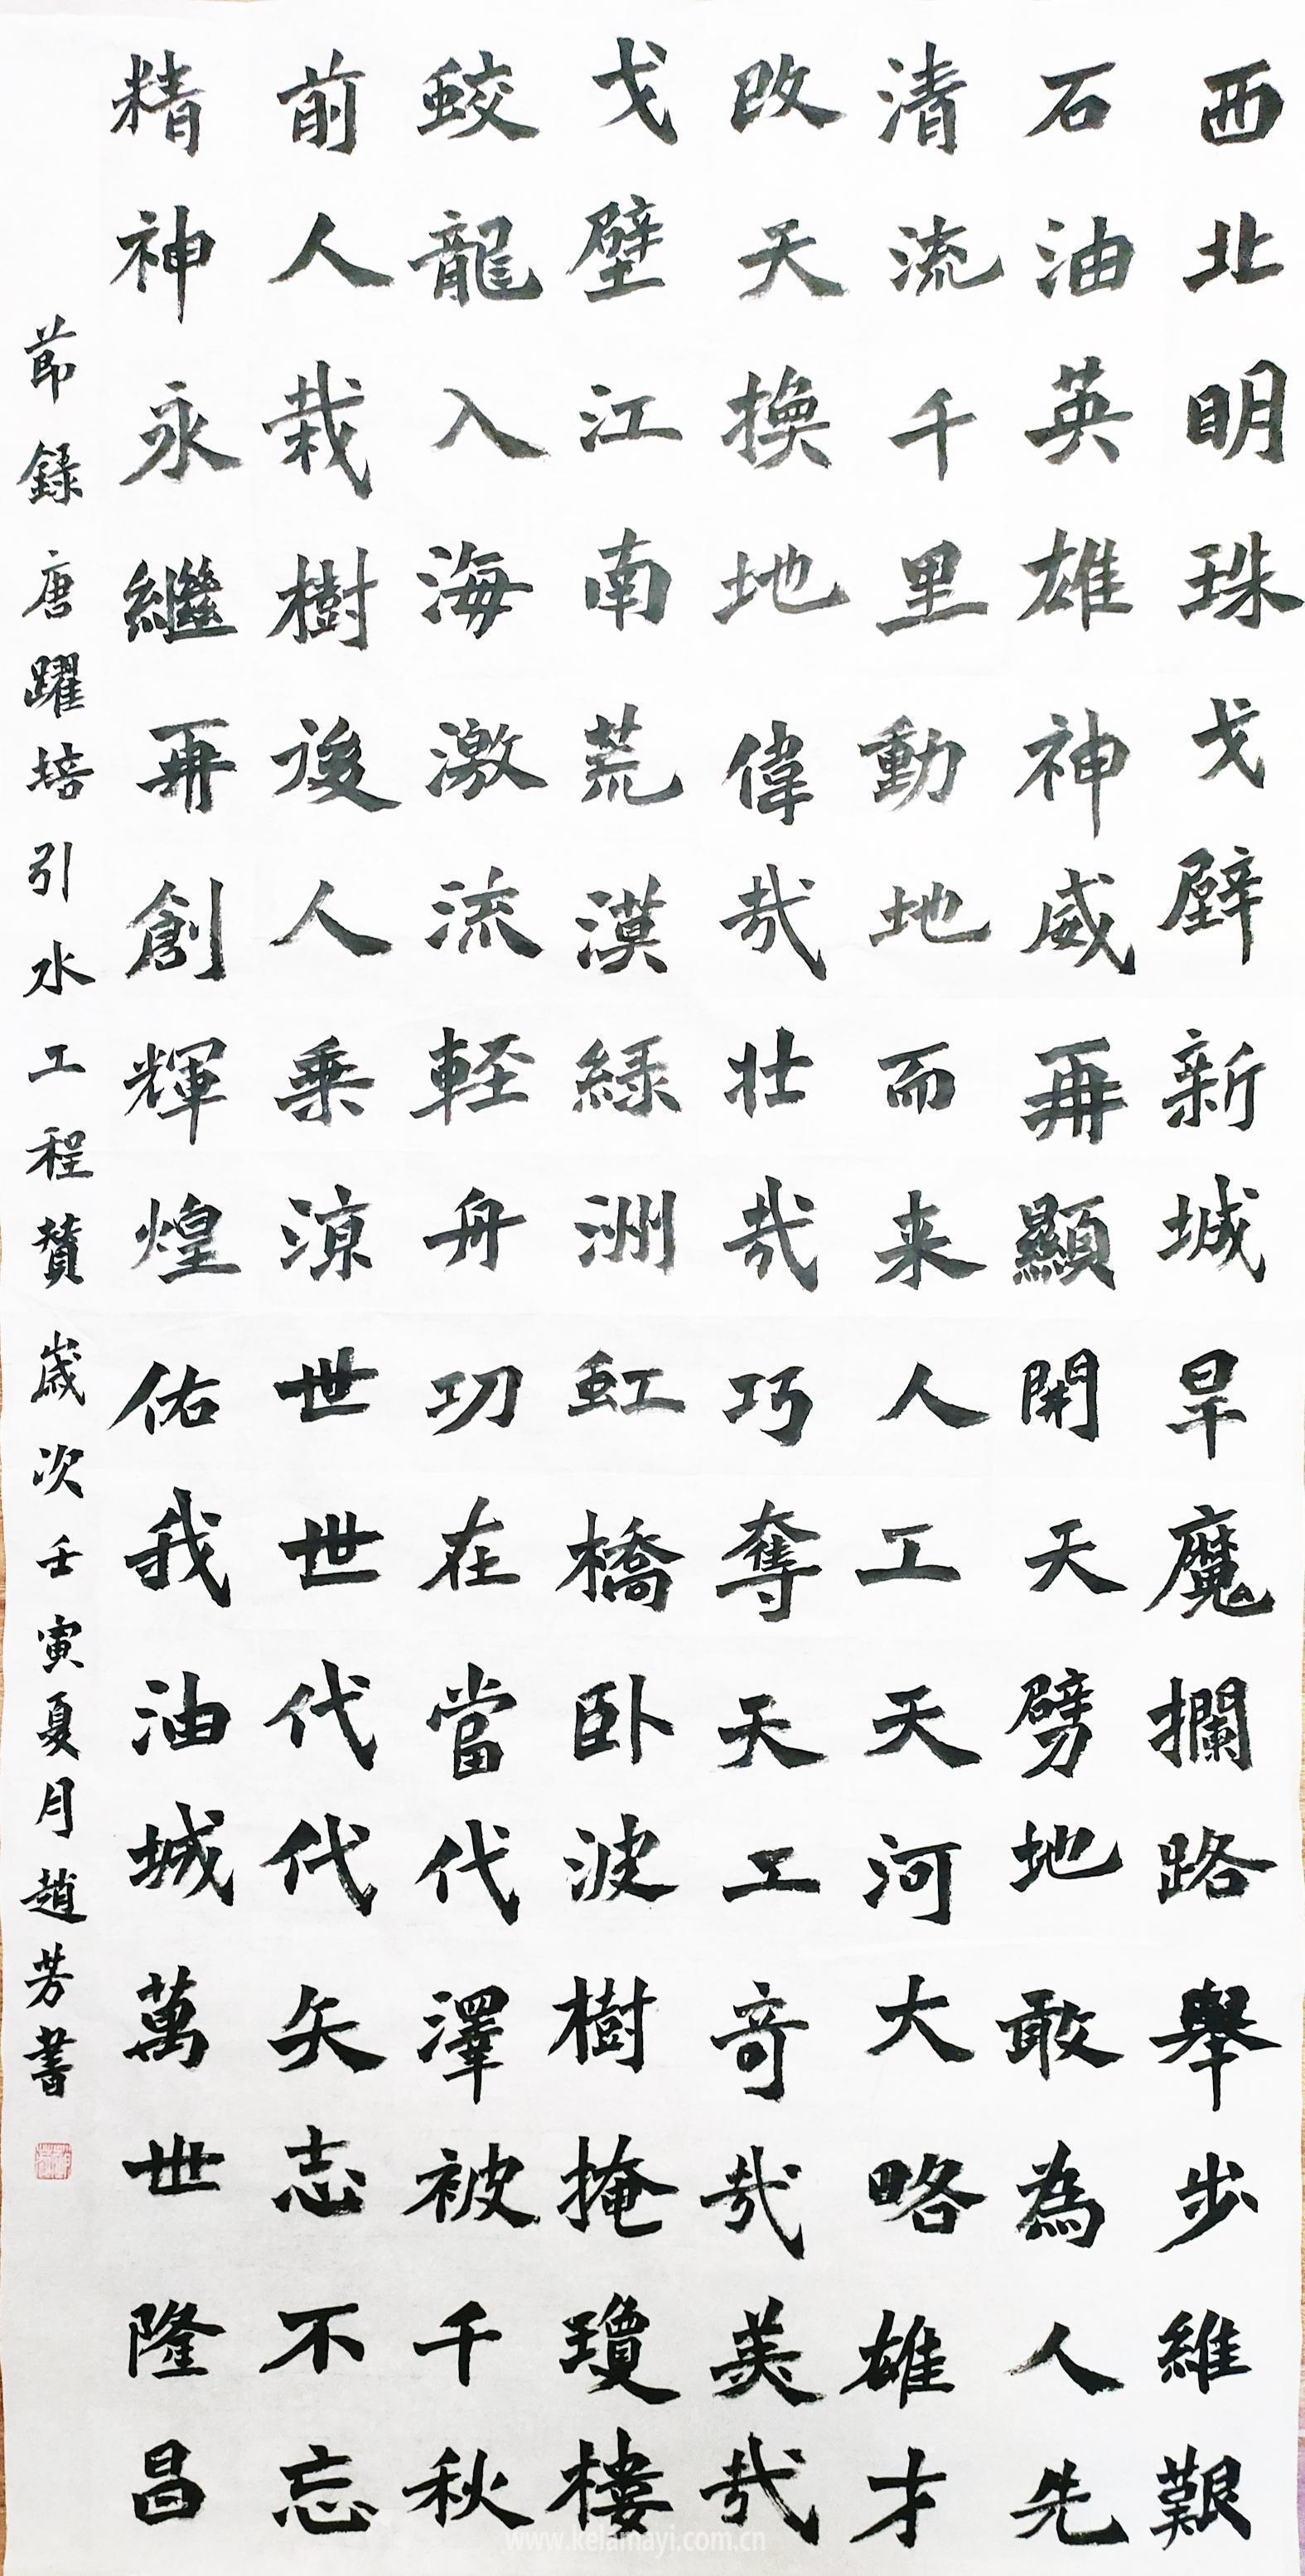 西北明珠戈壁新城旱魔攔路舉步維艱
石油英雄神威再顯開天劈地敢為人先
清流千里動地而来人工天河大略雄才
改天換地偉哉壯哉巧奪天工奇哉美哉
戈壁江南荒漠綠洲虹橋卧波樹掩瓊樓
蛟龍入海激流輕舟功在當代澤被千秋
前人栽樹後人乘涼世世代代矢志不忘
精神永繼再創輝煌佑我油城萬世隆昌
節錄唐躍培引水工程贊歲次壬寅夏月趙芳書
www.kelamayi.com.cn